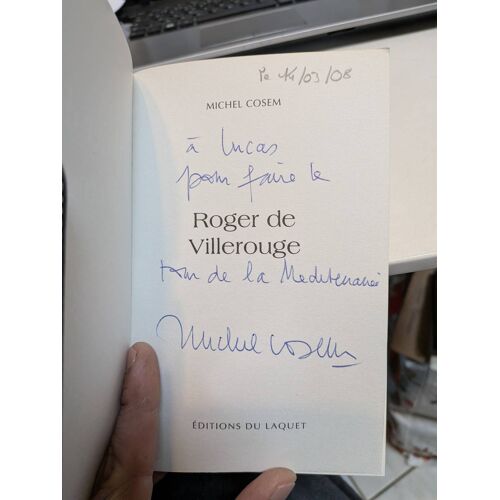 le 14/03/08
MICHEL COSEM
à Lucas
pour faire le
Roger de
Villerouge
tour de la Mediterranée
Michel Cosem
ÉDITIONS DU LAQUET